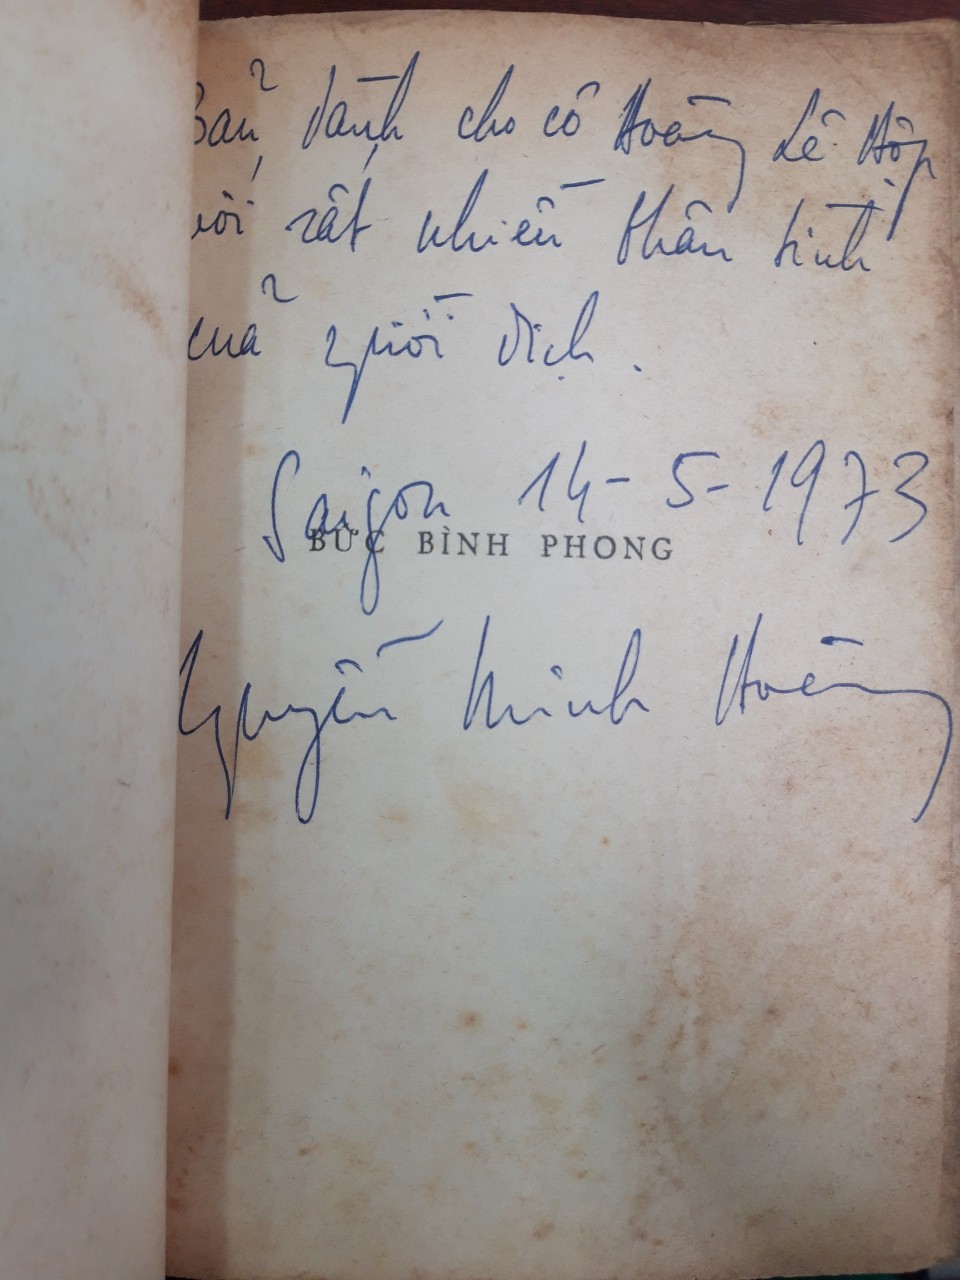 Bản dành cho cô Hoàng Lê Hợp
với rất nhiều thân tình
của người dịch.
Saigon 14-5-1973
BỨC BÌNH PHONG
Nguyễn Minh Hoàng